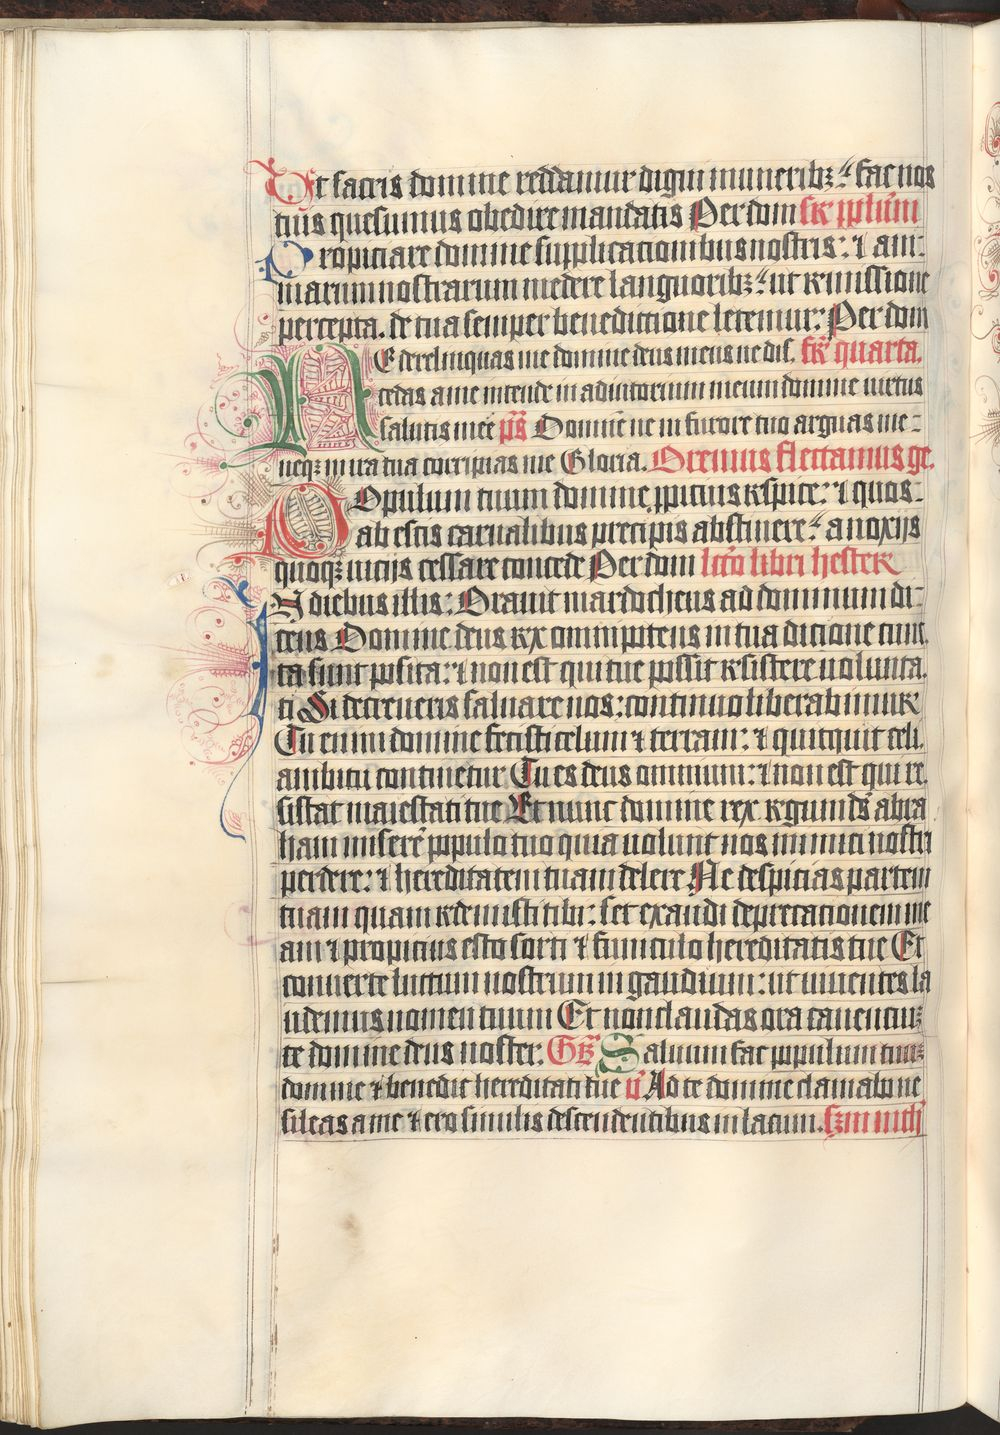 Ut sacris domine reddamur digni muneribꝫ: fac nos
tuis quesumus obedire mandatis Per dom
Propiciare domine supplicacionibus nostris: ⁊ ani-
marum nostrarum medere languoribꝫ: ut remissione
percepta. de tua semper benedictione letemur: Per dom
NE derelinquas me domine deus meus ne dis. fer̄ quarta.
cedas a me intende in adiutorium meum domine virtus
salutis mee p̄s Domine ne in furore tuo arguas me:
neqꝫ in ira tua corripias me Gloria. Oremus flectamus ge.
Populum tuum domine ꝓpicius respice: ⁊ quos-
ab escis carnalibus precipis abstinere: a noxijs
quoqꝫ vicijs cessare concede Per dom lc̄tō libri hester
In diebus illis: Oravit mardocheus ad dominum di-
cens Domine deus rex omnipotens in tua dicione cunc.
ta sunt posita: ⁊ non est qui tue possit resistere volunta.
ti Si decreveris salvare nos: continuo liberabimur
Tu enim domine fecisti celum ⁊ terram: ⁊ quicquit celi.
ambitu continetur Tu es deus omnium: ⁊ non est qui re.
sistat maiestati tue Et nunc domine rex regum ds̄ abra
ham misere popˀulo tuo quia volunt nos inimici nostri
perdere: ⁊ hereditatem tuam delere Ne despicias partem
tuam quam redemisti tibi: set exaudi deprecationem me
am ⁊ propicius esto sorti ⁊ funiculo hereditatis tue Et
converte luctum nostrum in gaudium: ut viventes la
udemus nomen tuum Et non claudas ora canenciuꝫ
te domine deus noster. Gr̄ Salvum fac populum tuuꝫ
domine ⁊ benedic hereditati tue v̄ Ad te domine clamabo ne
sileas a me ⁊ ero similis descendentibus in lacum. scꝫm mth̄